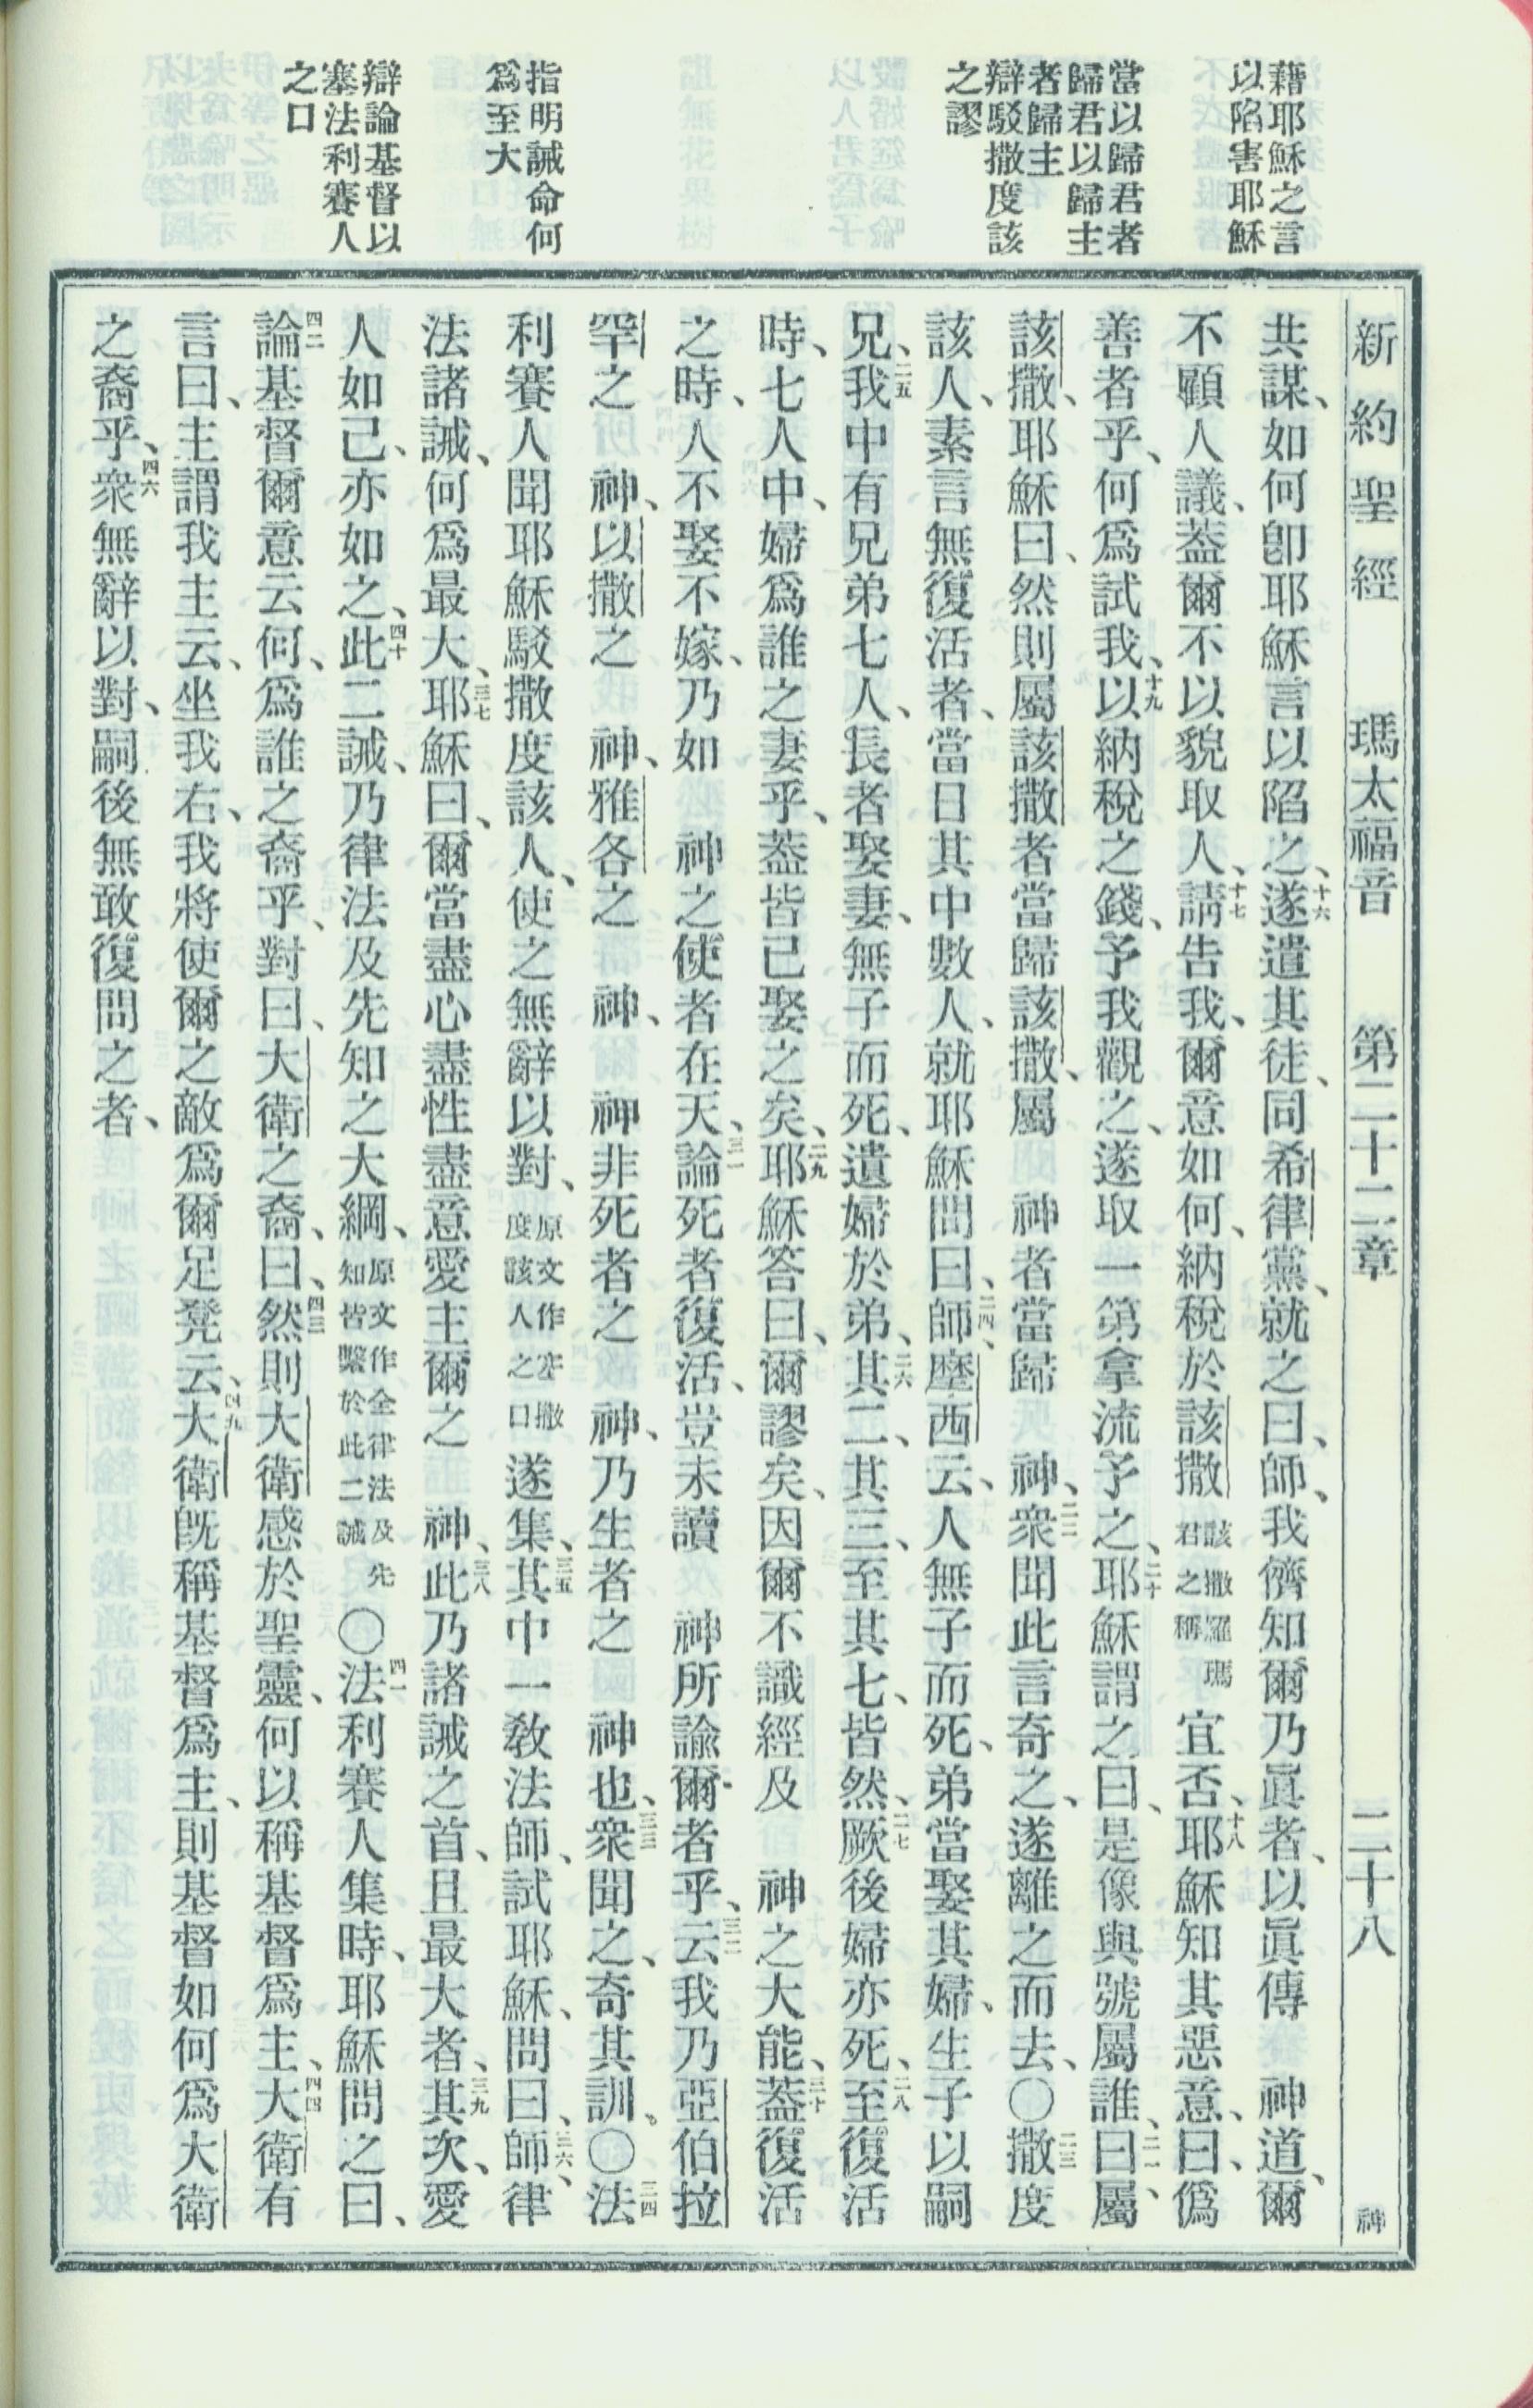 藉耶穌之言
以陷害耶穌
當以歸君者
歸君以歸主
者歸主
辯駁撒度該
之謬
指明誡命何
爲至大
辯論基督以
塞法利賽人
之口
新約聖經 瑪太福音 第二十二章 二十八 神
共謀、如何卽耶穌言以陷之、十六遂遣其徒、同希律黨、就之曰、師、我儕知爾乃眞者、以眞傳 神道、爾
不顧人議、葢爾不以貌取人、十七請告我、爾意如何、納稅於該撒該撒羅瑪君之稱宜否、十八耶穌知其惡意、曰、僞
善者乎、何爲試我、十九以納稅之錢、予我觀之、遂取一第拿流予之、二十耶穌謂之曰、是像與號屬誰、二一曰、屬
該撒、耶穌曰、然則屬該撒者當歸該撒、屬 神者當歸 神、二二衆聞此言奇之、遂離之而去、〇二三撒度
該人、素言無復活者、當日其中數人、就耶穌問曰、二四師、摩西云、人無子而死、弟當娶其婦、生子以嗣
兄、二五我中有兄弟七人、長者娶妻、無子而死、遺婦於弟、二六其二、其三、至其七、皆然、二七厥後婦亦死、二八至復活
時、七人中、婦爲誰之妻乎、葢皆已娶之矣、二九耶穌答曰、爾謬矣、因爾不識經及 神之大能、三十葢復活
之時、人不娶不嫁、乃如 神之使者在天、三一論死者復活、豈未讀 神所諭爾者乎、三二云我乃亞伯拉
罕之 神、以撒之 神、雅各之 神、 神非死者之 神、乃生者之 神也、三三衆聞之、奇其訓。〇三四法
利賽人聞耶穌駁撒度該人、使之無辭以對、原文作塞撒度該人之口遂集、三五其中一敎法師、試耶穌、問曰、三六師、律
法諸誡、何爲最大、三七耶穌曰、爾當盡心盡性盡意愛主爾之 神、三八此乃諸誡之首、且最大者、三九其次、愛
人如己、亦如之、四十此二誡、乃律法及先知之大綱、原文作全律法及先知皆繫於此二誡〇四一法利賽人集時、耶穌問之曰、
四二論基督爾意云何、爲誰之裔乎、對曰、大衛之裔、四三曰、然則大衛感於聖靈、何以稱基督爲主、四四大衛有
言曰、主謂我主云、坐我右、我將使爾之敵爲爾足凳云、四九大衛旣稱基督爲主、則基督如何爲大衛
之裔乎、四六衆無辭以對、嗣後無敢復問之者、